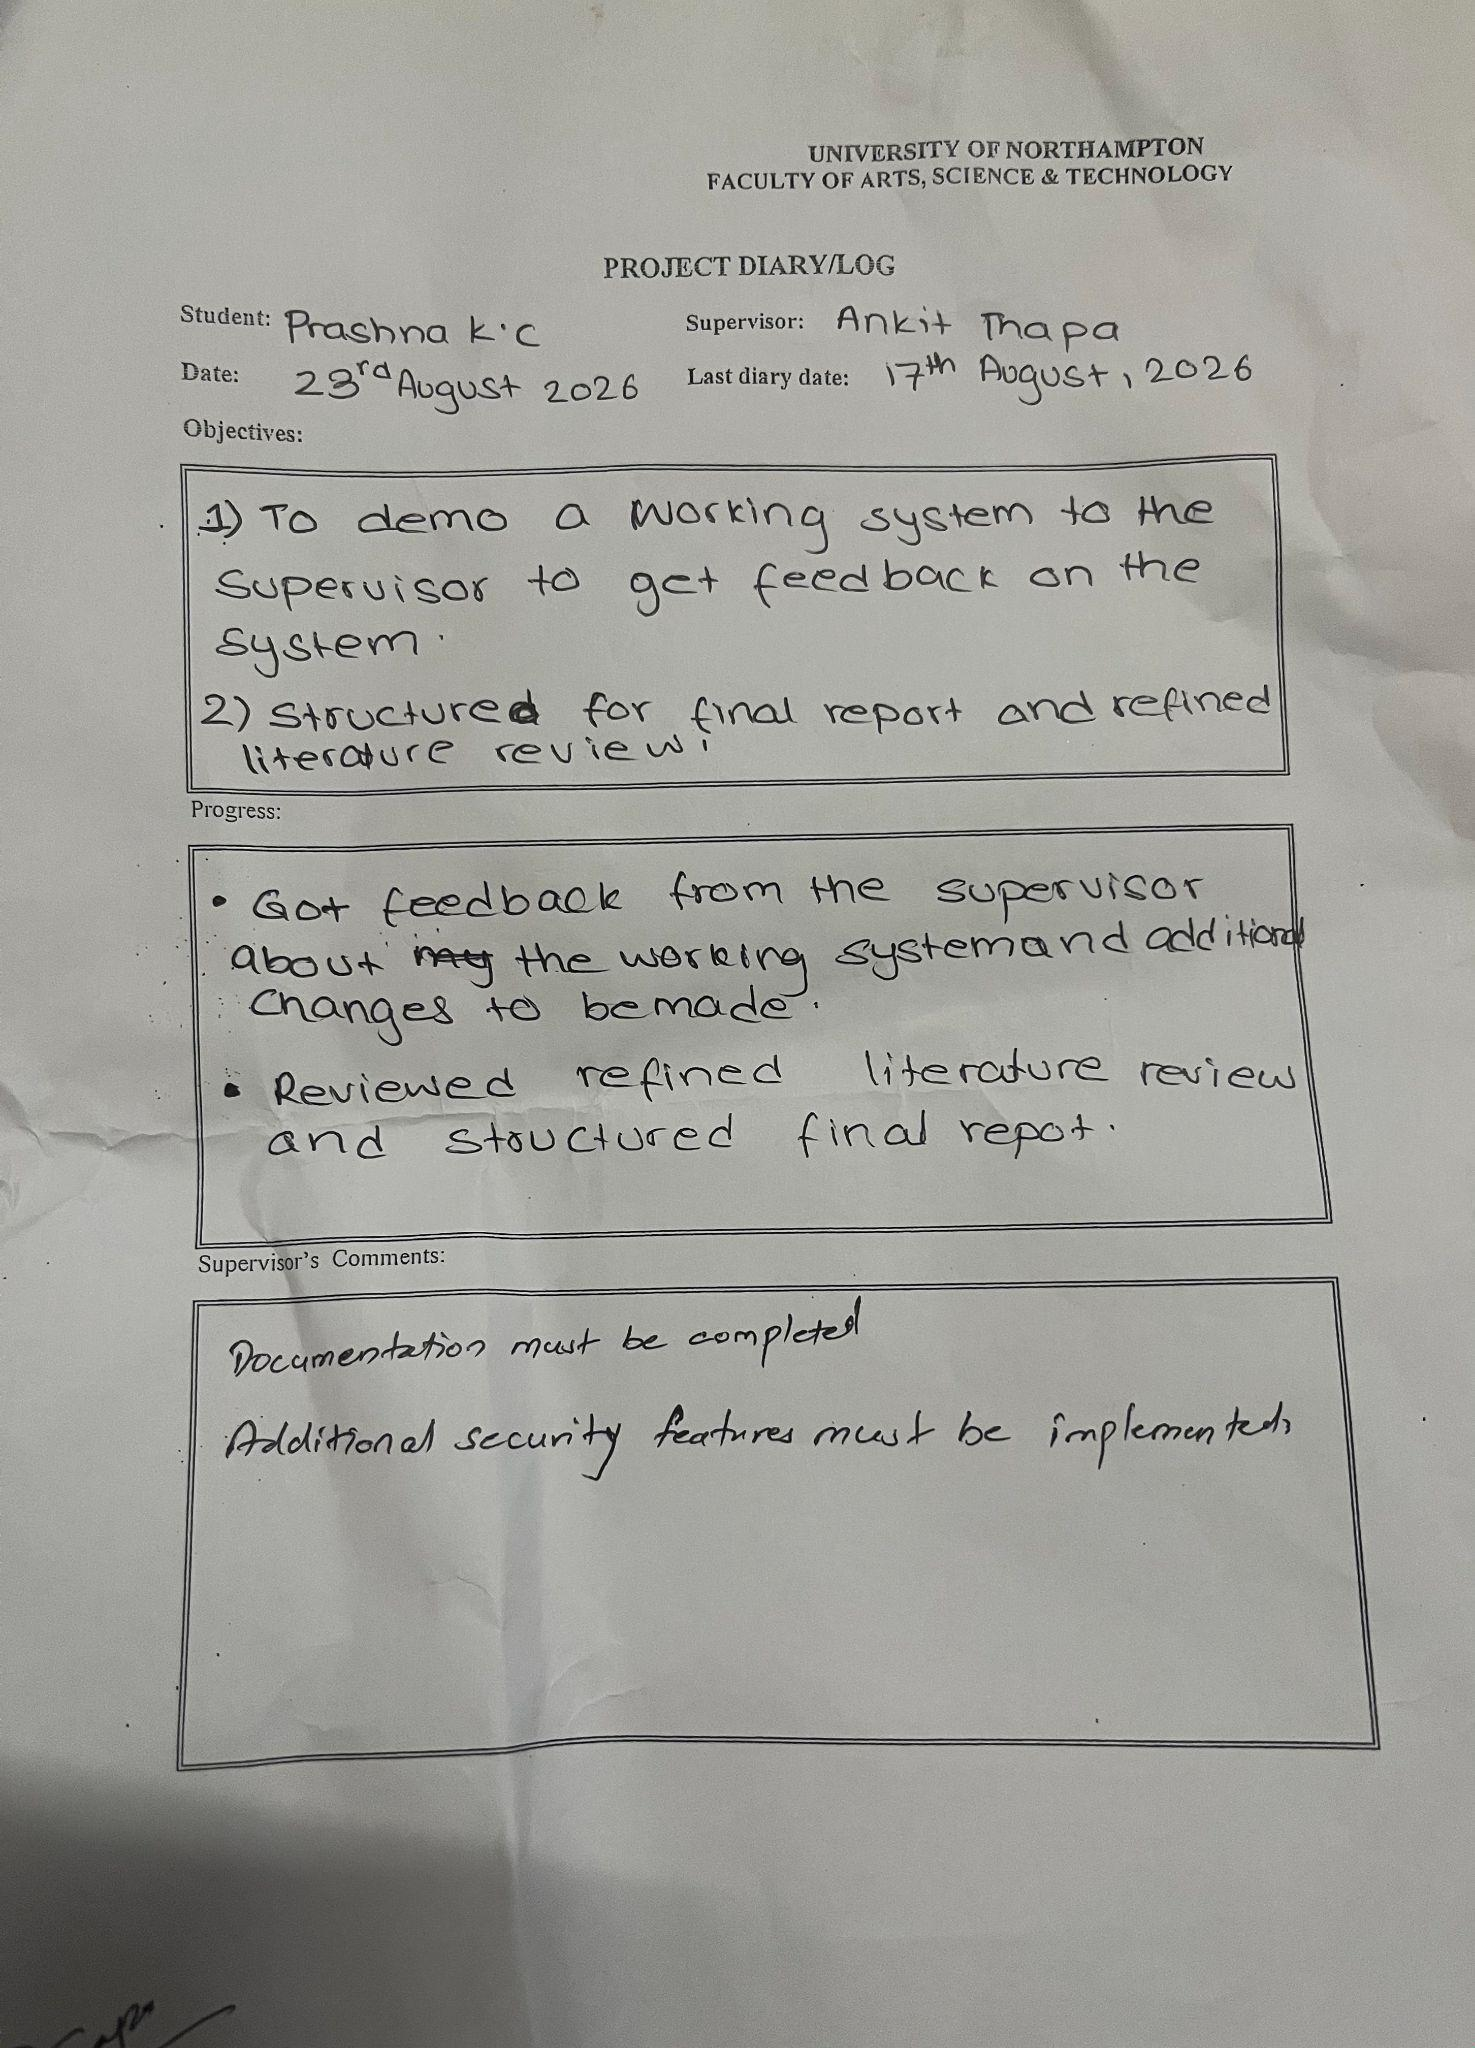 UNIVERSITY OF NORTHAMPTON
FACULTY OF ARTS, SCIENCE & TECHNOLOGY
PROJECT DIARY/LOG
Student: Prashna K.C Supervisor: Ankit Thapa
Date: 23rd August 2026 Last diary date: 17th August, 2026
Objectives:
1) To demo a working system to the
supervisor to get feedback on the
system.
2) Structured for final report and refined
literature review.
Progress:
• Got feedback from the supervisor
about my the working system and additional
changes to be made.
• Reviewed refined literature review
and structured final repot.
Supervisor's Comments:
Documentation must be completed
Additional security features must be implemented.